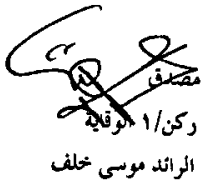 مصدق
ركن/١ الوقاية
الرائد موسى خلف